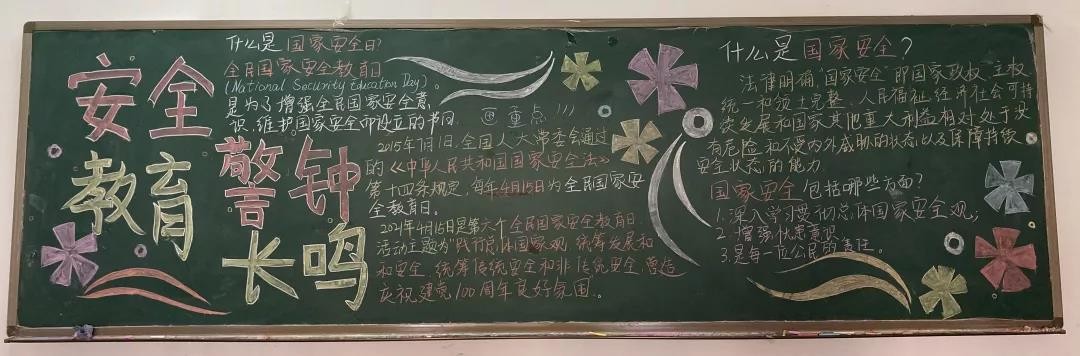 安全
教育
警钟
长鸣
什么是国家安全日?
全民国家安全教育日
(National Security Education Day).
是为了增强全民国家安全意
识,维护国家安全而设立的节日.
画重点!!!
2015年7月1日,全国人大常委会通过
的《中华人民共和国国家安全法》
第十四条规定,每年4月15日为全民国家安
全教育日。
2021年4月15日是第六个全民国家安全教育日.
活动主题为"践行总体国家观,统筹发展和
和安全,统筹传统安全和非传统安全,营造
庆祝建党100周年良好氛围。
什么是国家安全?
法律明确,"国家安全"即国家政权、主权、
统一和领土完整、人民福祉、经济社会可持
续发展和国家其他重大利益相对处于没
有危险和不受内外威胁的状态,以及保障持续
安全状态的能力.
国家安全包括哪些方面?
1.深入学习贯彻总体国家安全观;
2.增强忧患意识
3.是每一位公民的责任。